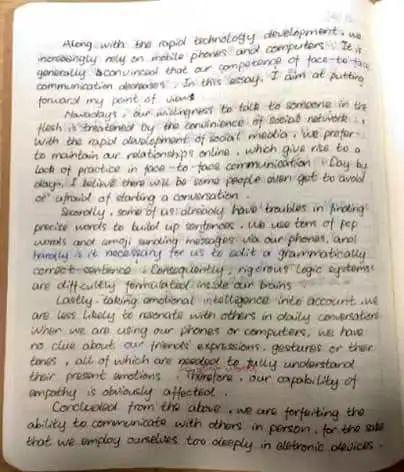 Along with the rapid technology development, we
increasingly rely on mobile phones and computers. It is
generally convinced that our competence of face-to-face
communication decreases. In this essay, I aim at putting
forward my point of views
Nowadays, our willingness to talk to someone in the
flesh is threatened by the convinience of social network.
With the rapid development of social media, we prefer
to maintain our relationships online, which give rise to a
lack of practice in face-to-face communication. Day by
day, I believe there will be some people even get to avoid
or afraid of starting a conversation.
Secondly, some of us already have troubles in finding
precise words to build up sentences. We use tons of pop
words and emoji sending messages via our phones, and
hardly is it necessary for us to edit a grammatically
correct sentence. Consequently, rigorous logic systems
are difficultly formulated inside our brains
Lastly, taking emotional intelligence into account, we
are less likely to resonate with others in daily conversation
When we are using our phones or computers, we have
no clue about our friends' expressions, gestures or their
tones, all of which are needed to fully understand
their present emotions. Therefore, our capability of
empathy is obviously affected.
Concluded from the above, we are forfeiting the
ability to communicate with others in person, for the sake
that we employ ourselves too deeply in eletronic devices.